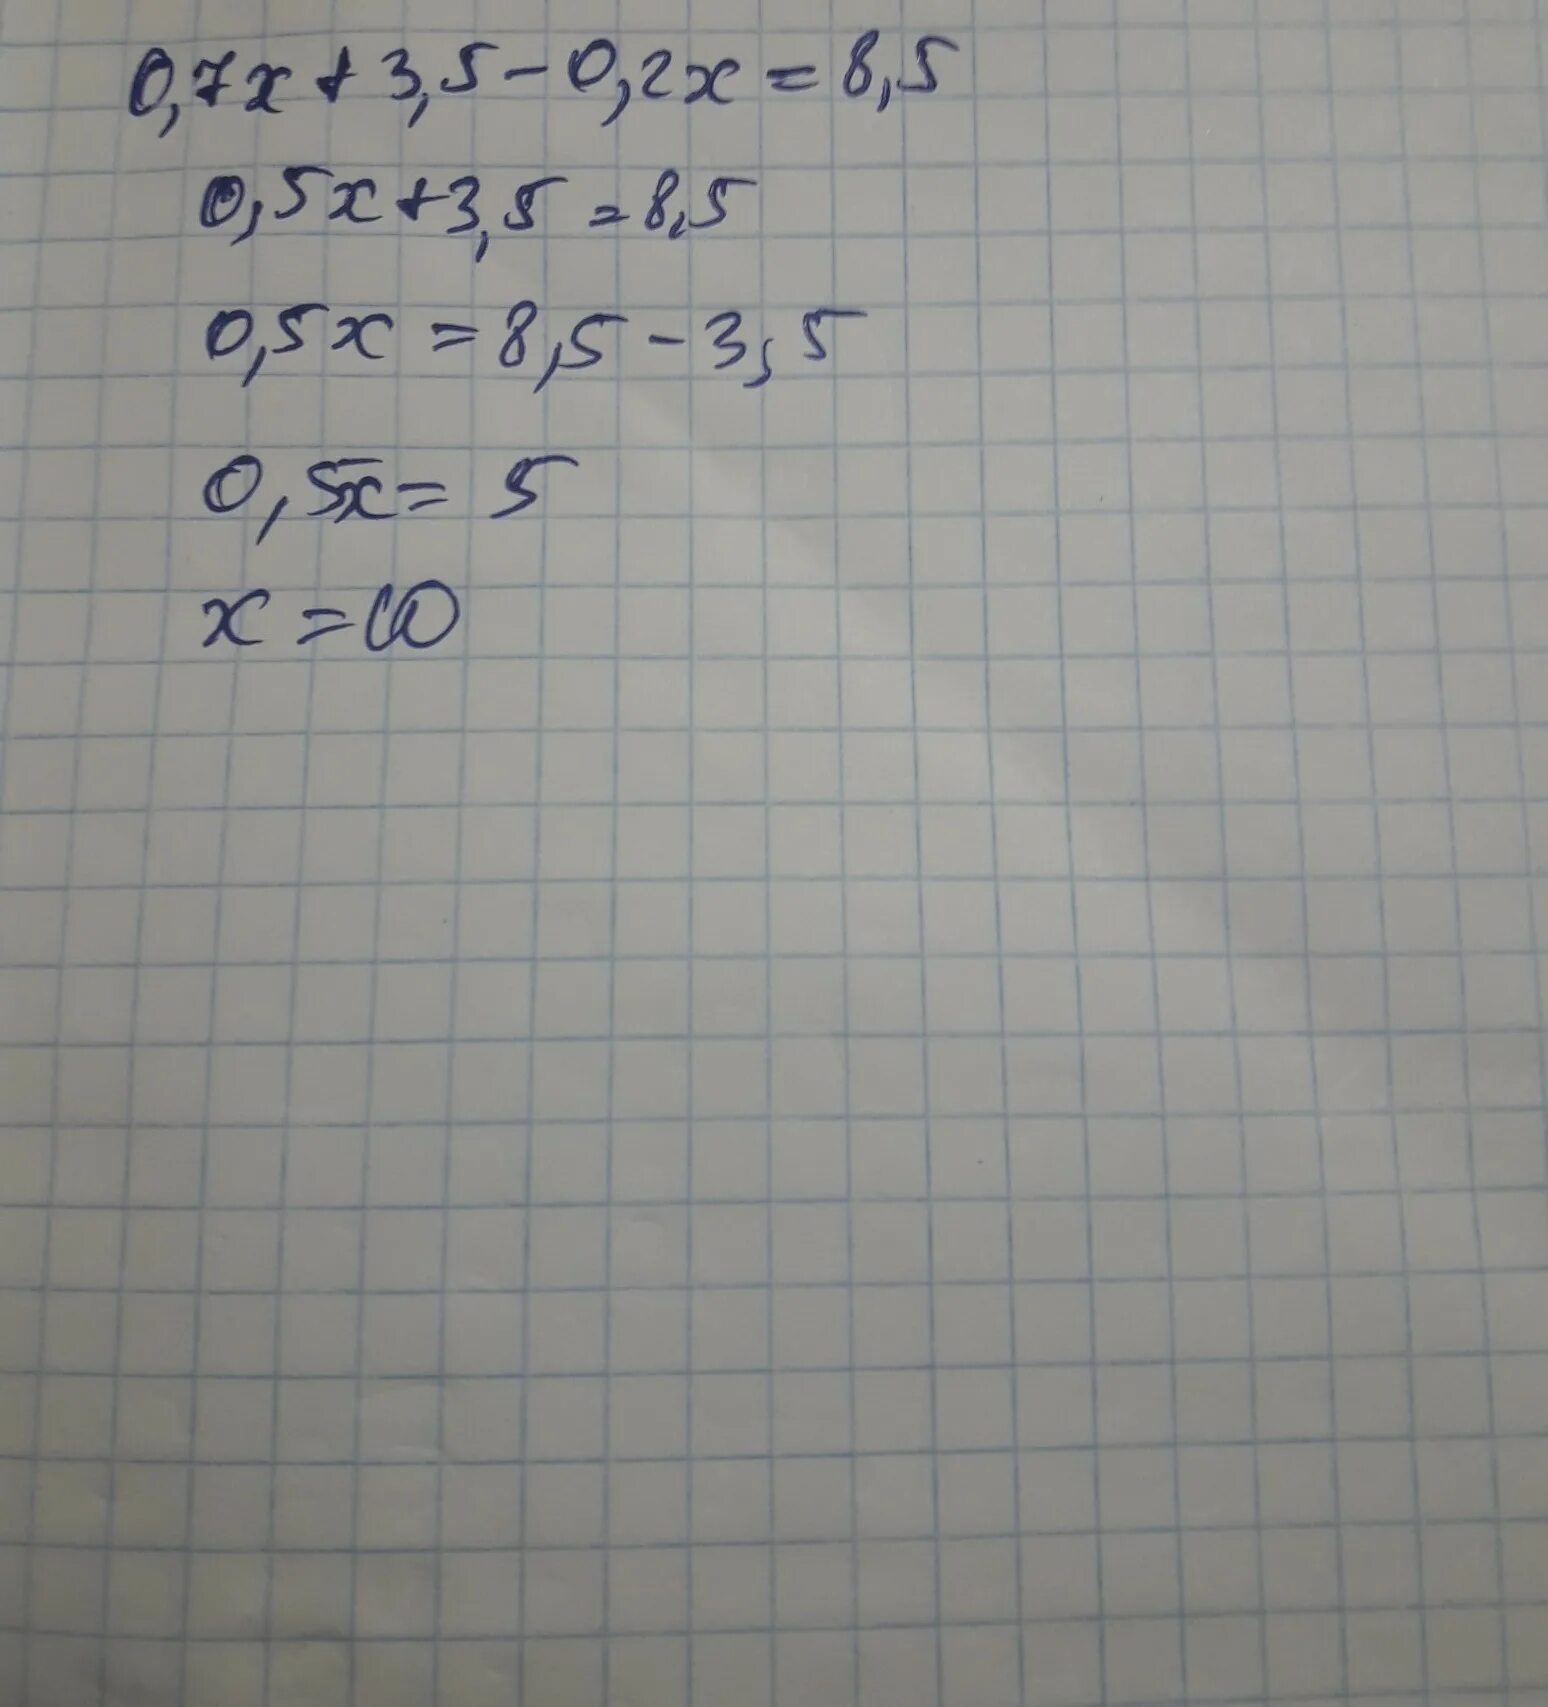 0,7x+3,5-0,2x=8,5
0,5x+3,5=8,5
0,5x=8,5-3,5
0,5x=5
x=10